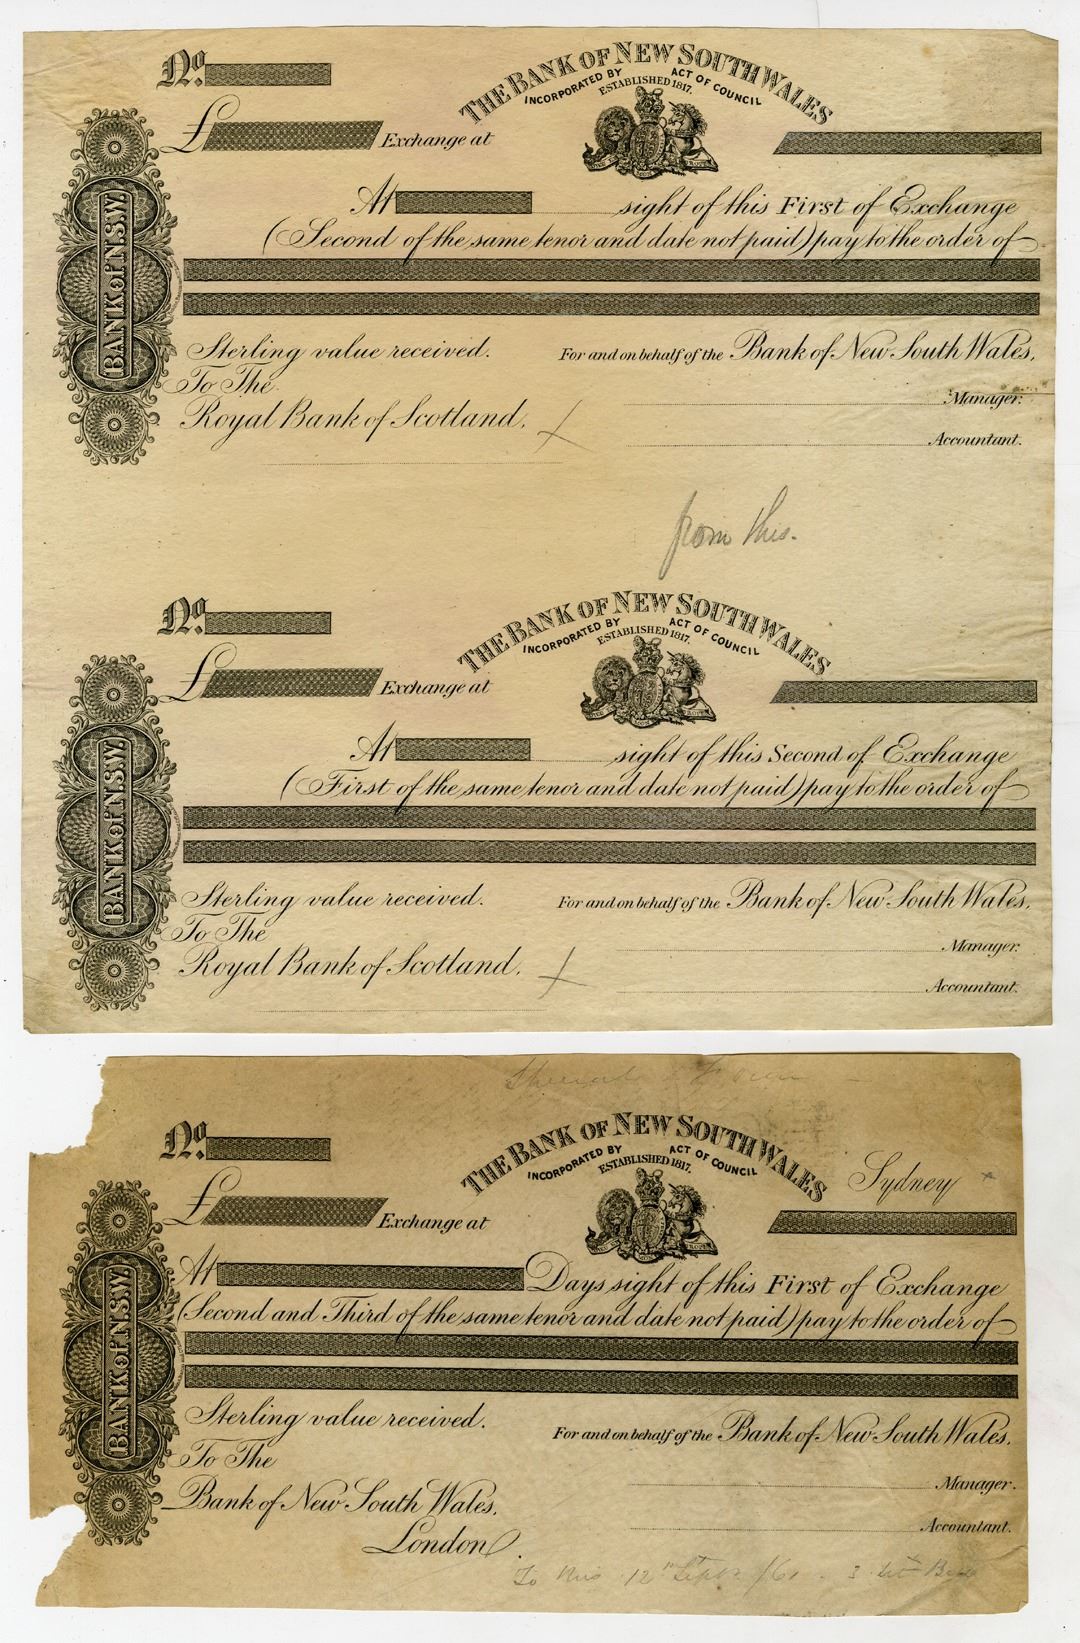 No.
THE BANK OF NEW SOUTH WALES
INCORPORATED BY ACT OF COUNCIL
ESTABLISHED 1817.
£ Exchange at
At sight of this First of Exchange
(Second of the same tenor and date not paid) pay to the order of
BANK OF N.S.W.
Sterling value received. For and on behalf of the Bank of New South Wales,
To The
Manager.
Royal Bank of Scotland,
Accountant.
from this.
No.
THE BANK OF NEW SOUTH WALES
INCORPORATED BY ACT OF COUNCIL
ESTABLISHED 1817.
£ Exchange at
At sight of this Second of Exchange
(First of the same tenor and date not paid) pay to the order of
BANK OF N.S.W.
Sterling value received. For and on behalf of the Bank of New South Wales,
To The
Manager.
Royal Bank of Scotland,
Accountant.
No.
THE BANK OF NEW SOUTH WALES
INCORPORATED BY ACT OF COUNCIL
ESTABLISHED 1817.
Sydney
£ Exchange at
At Days sight of this First of Exchange
(Second and Third of the same tenor and date not paid) pay to the order of
BANK OF N.S.W.
Sterling value received. For and on behalf of the Bank of New South Wales,
To The
Manager.
Bank of New South Wales,
Accountant.
London.
To this 12th Septr /61